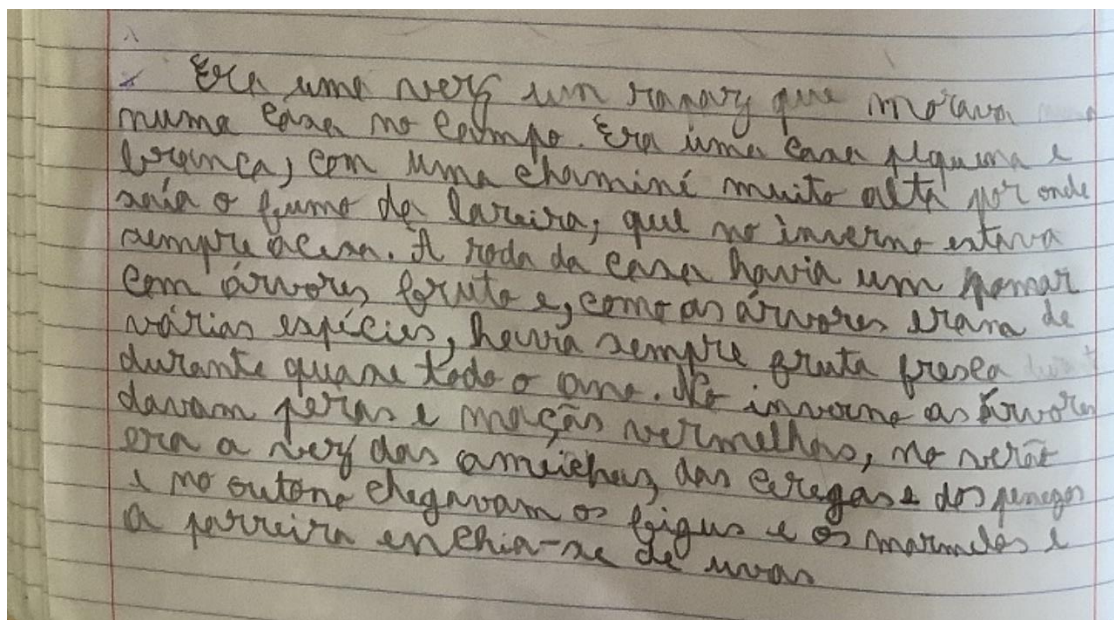 Era uma vez um rapaz que morava
numa casa no campo. Era uma casa pequena e
branca, com uma chaminé muito alta por onde
saía o fumo da lareira, que no inverno estava
sempre acesa. À roda da casa havia um pomar
com árvores fruto e, como as árvores eram de
várias espécies, havia sempre fruta fresca
durante quase todo o ano. No inverno as árvores
davam peras e maçãs vermelhas, no verão
era a vez das ameixas, das cerejas e dos pesegos
e no outono chegavam os figus e os marmelos e
a parreira enchia-se de uvas